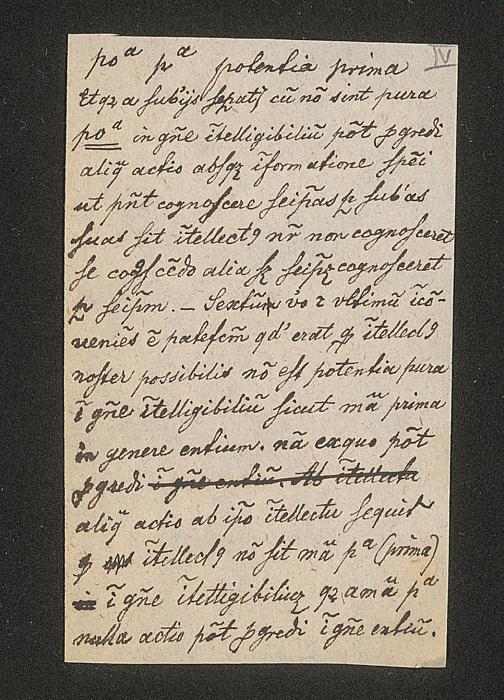 IV
poᵃ pᵃ potentia prima
Et qꝫ a sub'ijs sepat᷒ cū nō sint pura
poᵃ in gn̄e ītelligibiliū pōt ꝓgredi
aliq̄ actio absqꝫ īformatione spēi
ut pn̄t cognoscere seip̄as ꝑ sub'as
suas sit ītellectꝯ nr̄ non cognosceret
se cognoscēdo alia sꝫ seip̄ꝫ cognosceret
ꝑ seip̄m. — Sextūm v̓o ⁊ vltimū īcō-
ueniēs ē patefcm̄ qd' erat qꝫ ītellectꝯ
noster possibilis nō est potentia pura
ī gn̄e ītelligibiliū sicut mā prima
in genere entium. nā ex quo pōt
ꝓgredi ī gn̄e entiū. Ab ītellectu
aliq̄ actio ab ip̄o ītellectu sequit᷒
ꝙ ītellectꝯ nō sit mā pᵃ (prīma)
ī gn̄e ītelligibiliuꝫ qꝫ a mā pᵃ
nulla actio pōt ꝓgredi ī gn̄e entiū.